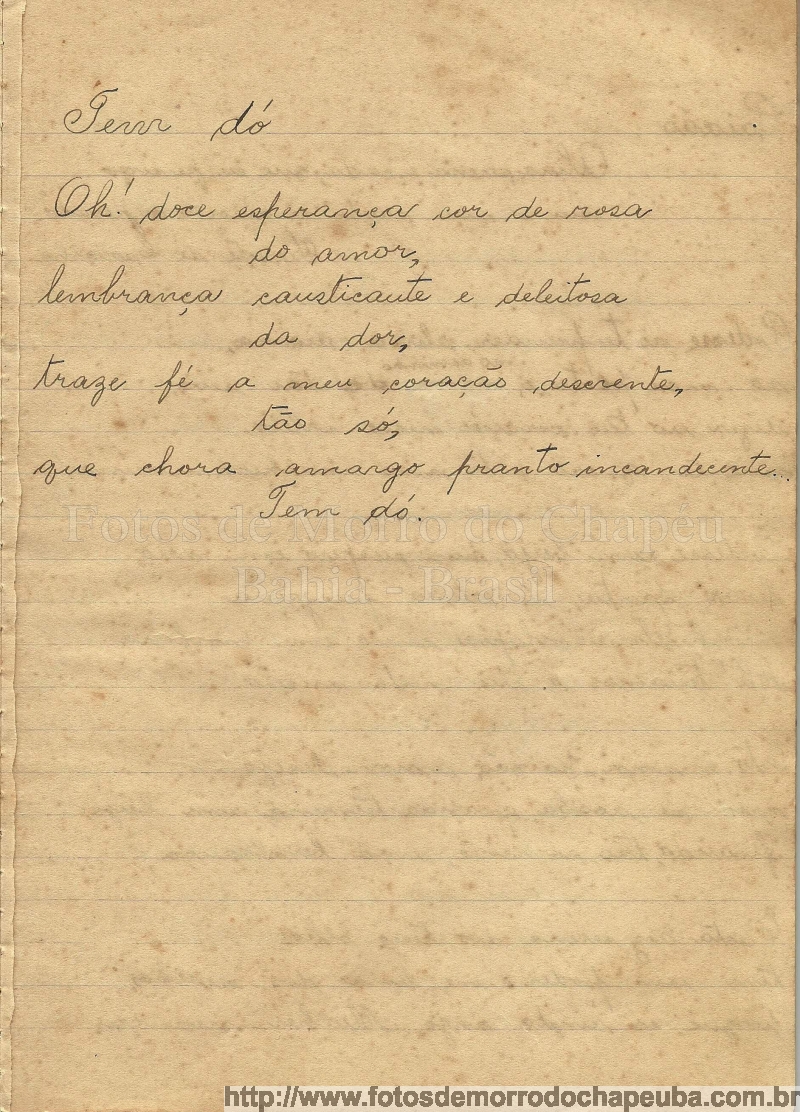 Tem dó
Oh! doce esperança cor de rosa
do amor,
lembrança causticante e deleitosa
da dor,
traze fé a meu coração descrente,
tão só,
que chora amargo pranto incandecente...
Tem dó.
Fotos de Morro do Chapéu
Bahia - Brasil
http://www.fotosdemorrodochapeuba.com.br